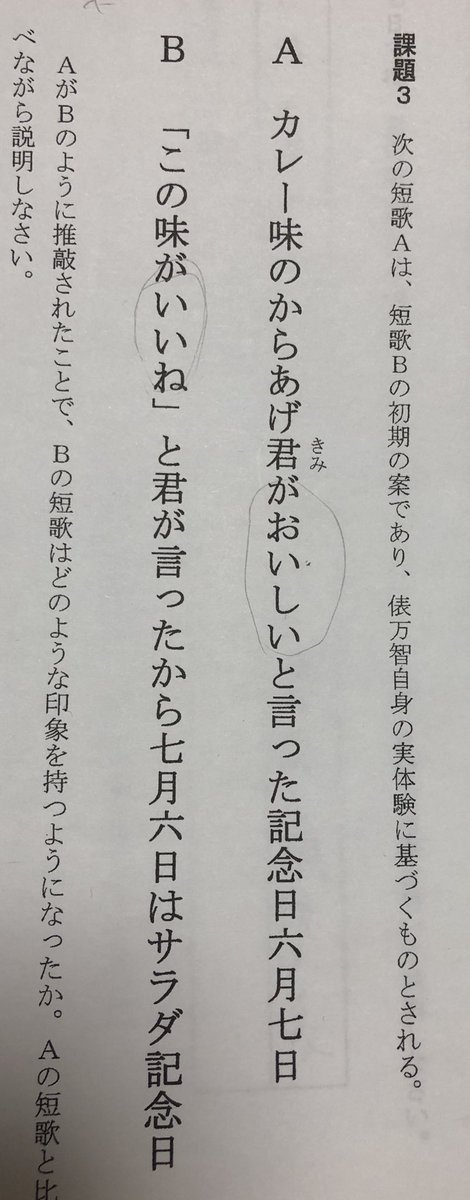 課題3 次の短歌Aは、短歌Bの初期の案であり、俵万智自身の実体験に基づくものとされる。
A カレー味のからあげ君がおいしいと言った記念日六月七日
きみ
B 「この味がいいね」と君が言ったから七月六日はサラダ記念日
AがBのように推敲されたことで、Bの短歌はどのような印象を持つようになったか。Aの短歌と比
べながら説明しなさい。